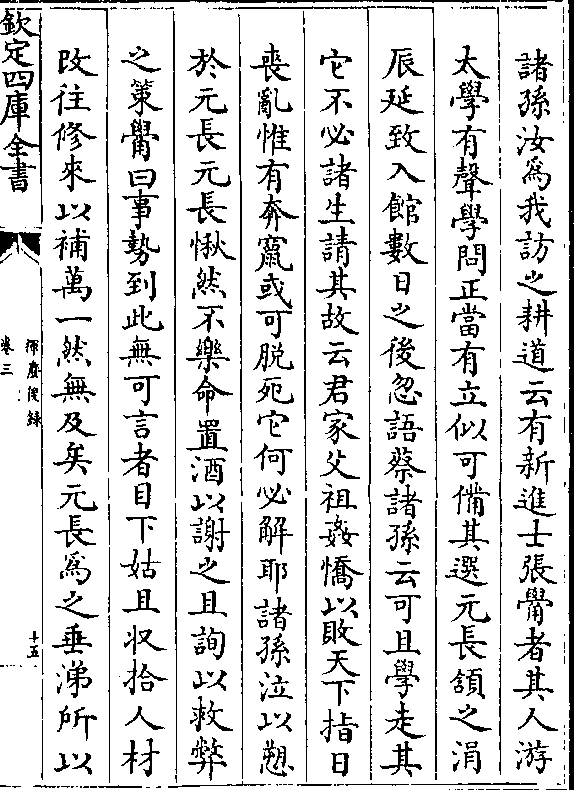 諸孫汝爲我訪之耕道云有新進士張觷者其人游
太學有聲學問正當有立似可備其選元長頷之涓
辰延致入館數日之後忽語蔡諸孫云可且學走其
它不必諸生請其故云君家父祖姦憍以敗天下指日
喪亂惟有奔竄或可脱死它何必解耶諸孫泣以愬
於元長元長愀然不樂命置酒以謝之且詢以救弊
之策觷曰事勢到此無可言者目下姑且収拾人材
改往修來以補萬一然無及矣元長爲之垂涕所以
欽定四庫全書
揮麈後録
卷三
十五